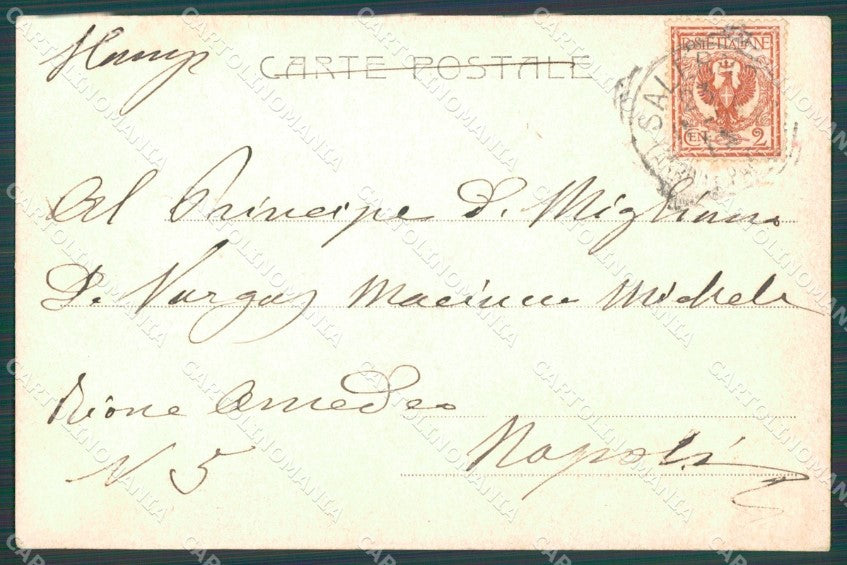 Stamp
CARTE POSTALE
POSTE ITALIANE
CEN. 2
SALERNO
Al Principe D. Migliano
D. Vargas Macciucca Michele
Rione Amedeo
N 5
Napoli
CARTOLINOMANIA